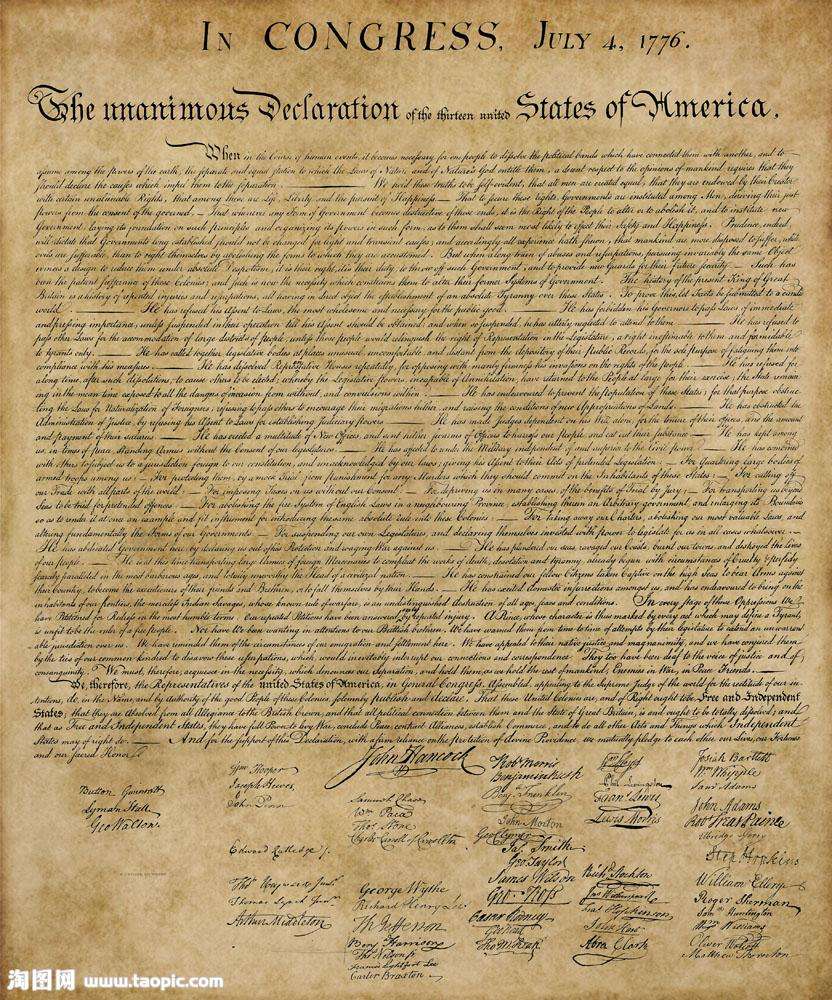 IN CONGRESS, JULY 4, 1776.
The unanimous Declaration of the thirteen united States of America,
When in the Course of human events, it becomes necessary for one people to dissolve the political bands which have connected them with another, and to
assume among the powers of the earth, the separate and equal station to which the Laws of Nature and of Nature's God entitle them, a decent respect to the opinions of mankind requires that they
should declare the causes which impel them to the separation. — We hold these truths to be self-evident, that all men are created equal, that they are endowed by their Creator
with certain unalienable Rights, that among these are Life, Liberty and the pursuit of Happiness. — That to secure these rights, Governments are instituted among Men, deriving their just
powers from the consent of the governed, — That whenever any Form of Government becomes destructive of these ends, it is the Right of the People to alter or to abolish it, and to institute new
Government, laying its foundation on such principles and organizing its powers in such form, as to them shall seem most likely to effect their Safety and Happiness. Prudence, indeed,
will dictate that Governments long established should not be changed for light and transient causes; and accordingly all experience hath shewn, that mankind are more disposed to suffer, while
evils are sufferable, than to right themselves by abolishing the forms to which they are accustomed. But when a long train of abuses and usurpations, pursuing invariably the same Object
evinces a design to reduce them under absolute Despotism, it is their right, it is their duty, to throw off such Government, and to provide new Guards for their future security. — Such has
been the patient sufferance of these Colonies; and such is now the necessity which constrains them to alter their former Systems of Government. The history of the present King of Great
Britain is a history of repeated injuries and usurpations, all having in direct object the establishment of an absolute Tyranny over these States. To prove this, let Facts be submitted to a candid
world. — He has refused his Assent to Laws, the most wholesome and necessary for the public good. — He has forbidden his Governors to pass Laws of immediate
and pressing importance, unless suspended in their operation till his Assent should be obtained; and when so suspended, he has utterly neglected to attend to them. — He has refused to
pass other Laws for the accommodation of large districts of people, unless those people would relinquish the right of Representation in the Legislature, a right inestimable to them and formidable
to tyrants only. — He has called together legislative bodies at places unusual, uncomfortable, and distant from the depository of their Public Records, for the sole purpose of fatiguing them into
compliance with his measures. — He has dissolved Representative Houses repeatedly, for opposing with manly firmness his invasions on the rights of the people. — He has refused for
a long time, after such dissolutions, to cause others to be elected; whereby the Legislative powers, incapable of Annihilation, have returned to the People at large for their exercise; the State remain-
ing in the mean time exposed to all the dangers of invasion from without, and convulsions within. — He has endeavoured to prevent the population of these States; for that purpose obstruc-
ting the Laws for Naturalization of Foreigners; refusing to pass others to encourage their migrations hither, and raising the conditions of new Appropriations of Lands. — He has obstructed the
Administration of Justice, by refusing his Assent to Laws for establishing Judiciary powers. — He has made Judges dependent on his Will alone, for the tenure of their offices, and the amount
and payment of their salaries. — He has erected a multitude of New Offices, and sent hither swarms of Officers to harrass our People, and eat out their substance. — He has kept among
us, in times of peace, Standing Armies without the Consent of our legislatures. — He has affected to render the Military independent of and superior to the Civil power. — He has combined
with others to subject us to a jurisdiction foreign to our constitution, and unacknowledged by our laws; giving his Assent to their Acts of pretended Legislation: — For Quartering large bodies of
armed troops among us: — For protecting them, by a mock Trial, from punishment for any Murders which they should commit on the Inhabitants of these States: — For cutting off
our Trade with all parts of the world: — For imposing Taxes on us without our Consent: — For depriving us in many cases, of the benefits of Trial by Jury: — For transporting us beyond
Seas to be tried for pretended offences: — For abolishing the free System of English Laws in a neighbouring Province, establishing therein an Arbitrary government, and enlarging its Boundaries
so as to render it at once an example and fit instrument for introducing the same absolute rule into these Colonies: — For taking away our Charters, abolishing our most valuable Laws, and
altering fundamentally the Forms of our Governments: — For suspending our own Legislatures, and declaring themselves invested with power to legislate for us in all cases whatsoever. —
He has abdicated Government here, by declaring us out of his Protection and waging War against us. — He has plundered our seas, ravaged our Coasts, burnt our towns, and destroyed the lives
of our people. — He is at this time transporting large Armies of foreign Mercenaries to compleat the works of death, desolation and tyranny, already begun with circumstances of Cruelty & perfidy
scarcely paralleled in the most barbarous ages, and totally unworthy the Head of a civilized nation. — He has constrained our fellow Citizens taken Captive on the high Seas to bear Arms against
their Country, to become the executioners of their friends and Brethren, or to fall themselves by their Hands. — He has excited domestic insurrections amongst us, and has endeavoured to bring on the
inhabitants of our frontiers, the merciless Indian Savages, whose known rule of warfare, is an undistinguished destruction of all ages, sexes and conditions. In every stage of these Oppressions We
have Petitioned for Redress in the most humble terms: Our repeated Petitions have been answered only by repeated injury. A Prince, whose character is thus marked by every act which may define a Tyrant,
is unfit to be the ruler of a free people. Nor have We been wanting in attentions to our Brittish brethren. We have warned them from time to time of attempts by their legislature to extend an unwarrant-
able jurisdiction over us. We have reminded them of the circumstances of our emigration and settlement here. We have appealed to their native justice and magnanimity, and we have conjured them
by the ties of our common kindred to disavow these usurpations, which, would inevitably interrupt our connections and correspondence. They too have been deaf to the voice of justice and of
consanguinity. We must, therefore, acquiesce in the necessity, which denounces our Separation, and hold them, as we hold the rest of mankind, Enemies in War, in Peace Friends. —
We, therefore, the Representatives of the united States of America, in General Congress, Assembled, appealing to the Supreme Judge of the world for the rectitude of our in-
tentions, do, in the Name, and by Authority of the good People of these Colonies, solemnly publish and declare, That these United Colonies are, and of Right ought to be Free and Independent
States; that they are Absolved from all Allegiance to the British Crown, and that all political connection between them and the State of Great Britain, is and ought to be totally dissolved; and
that as Free and Independent States, they have full Power to levy War, conclude Peace, contract Alliances, establish Commerce, and to do all other Acts and Things which Independent
States may of right do. — And for the support of this Declaration, with a firm reliance on the protection of divine Providence, we mutually pledge to each other our Lives, our Fortunes
and our sacred Honor.
Button Gwinnett
Lyman Hall
Geo Walton.
Wm Hooper
Joseph Hewes
John Penn
Edward Rutledge
Thos Heyward Junr.
Thomas Lynch Junr.
Arthur Middleton
John Hancock
Samuel Chase
Wm Paca
Thos Stone
Charles Carroll of Carrollton
George Wythe
Richard Henry Lee
Th Jefferson
Benj Harrison
Thos Nelson jr
Francis Lightfoot Lee
Carter Braxton
Robt Morris
Benjamin Rush
Benj Franklin
John Morton
Geo Clymer
Jas Smith
Geo Taylor
James Wilson
Geo Ross
Caesar Rodney
Geo Read
Tho M:Kean
Wm Floyd
Phil Livingston
Frans Lewis
Lewis Morris
Richd Stockton
Jno Witherspoon
Fras Hopkinson
John Hart
Abra Clark
Josiah Bartlett
Wm Whipple
Saml Adams
John Adams
Robt Treat Paine
Elbridge Gerry
Step Hopkins
William Ellery
Roger Sherman
Saml Huntington
Wm Williams
Oliver Wolcott
Matthew Thornton
淘图网 www.taopic.com